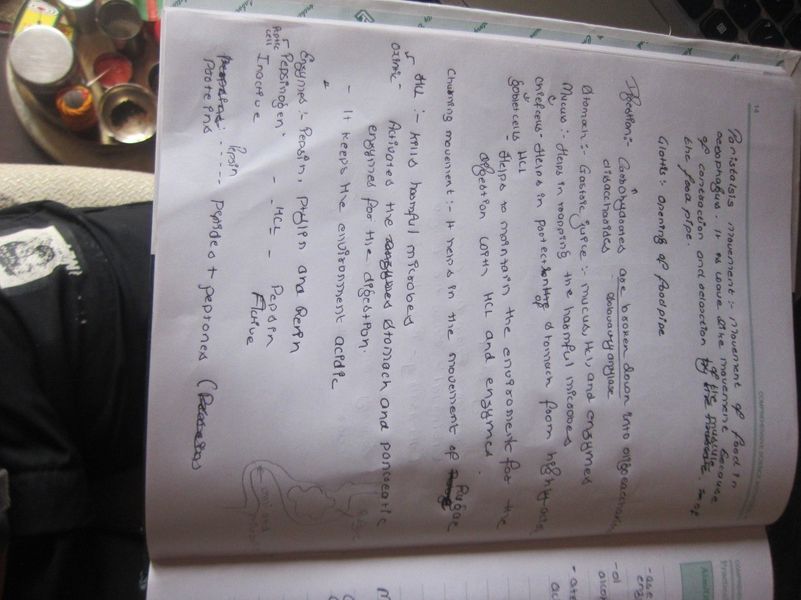 14
COMPREHENSIVE SCIENCE
Peristalsis movement :- movement of food in
oesophagus it is wave like movement because
of contraction and relaxation of the muscle of
the food pipe.
Glottis :- opening of food pipe
Digestion :- Carbohydrates are broken down into oligosaccharides
disaccharides salivary amylase
Stomach :- Gastric juice :- mucus, HCl, and enzymes
Mucus :- Helps in trapping the harmful microbes
chief cells - Helps in protection of stomach from highly acidic
goblet cells HCl
- Helps to maintain the environment for the
digestion with HCl and enzymes.
Churning movement :- It helps in the movement of Rugae
HCl :- kills harmful microbes
oxintic - Activates the stomach and pancreatic
enzymes for the digestion.
- It keeps the environment acidic
Enzymes :- Pepsin, ptylin and Renin
Pepsinogen - HCl - Pepsin
Inactive Active
Proteins Pepsin peptides + peptones